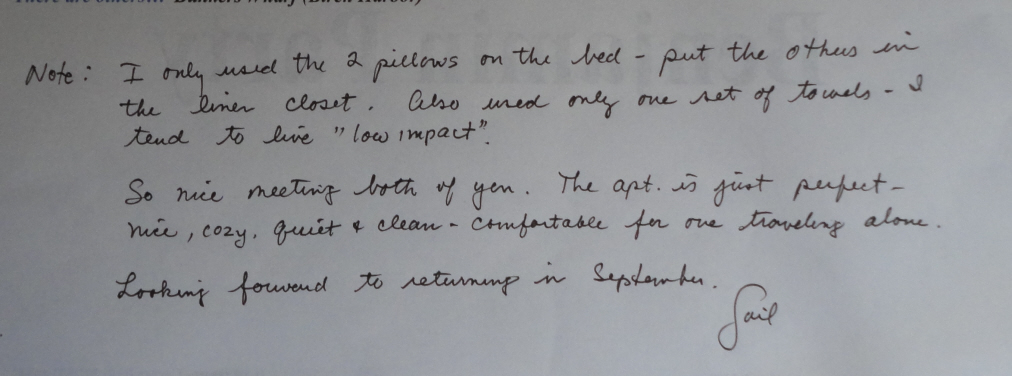 Note: I only used the 2 pillows on the bed - put the others in
the linen closet. Also used only one set of towels - I
tend to live "low impact".
So nice meeting both of you. The apt. is just perfect -
nice, cozy, quiet & clean - comfortable for one traveling alone.
Looking forward to returning in September.
Gail